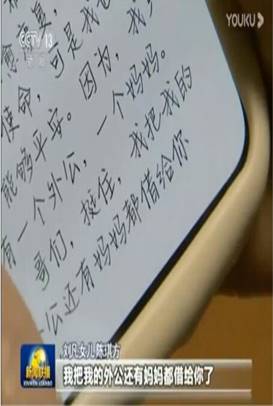 CCTV 13
YOUKU
愈康复,
使命,可是我
能够平安。因为我
有一个外公,一个妈妈。
哥们,挺住,我把我的
公还有妈妈都借给你
新闻联播
刘凡女儿 陈琪方
我把我的外公还有妈妈都借给你了